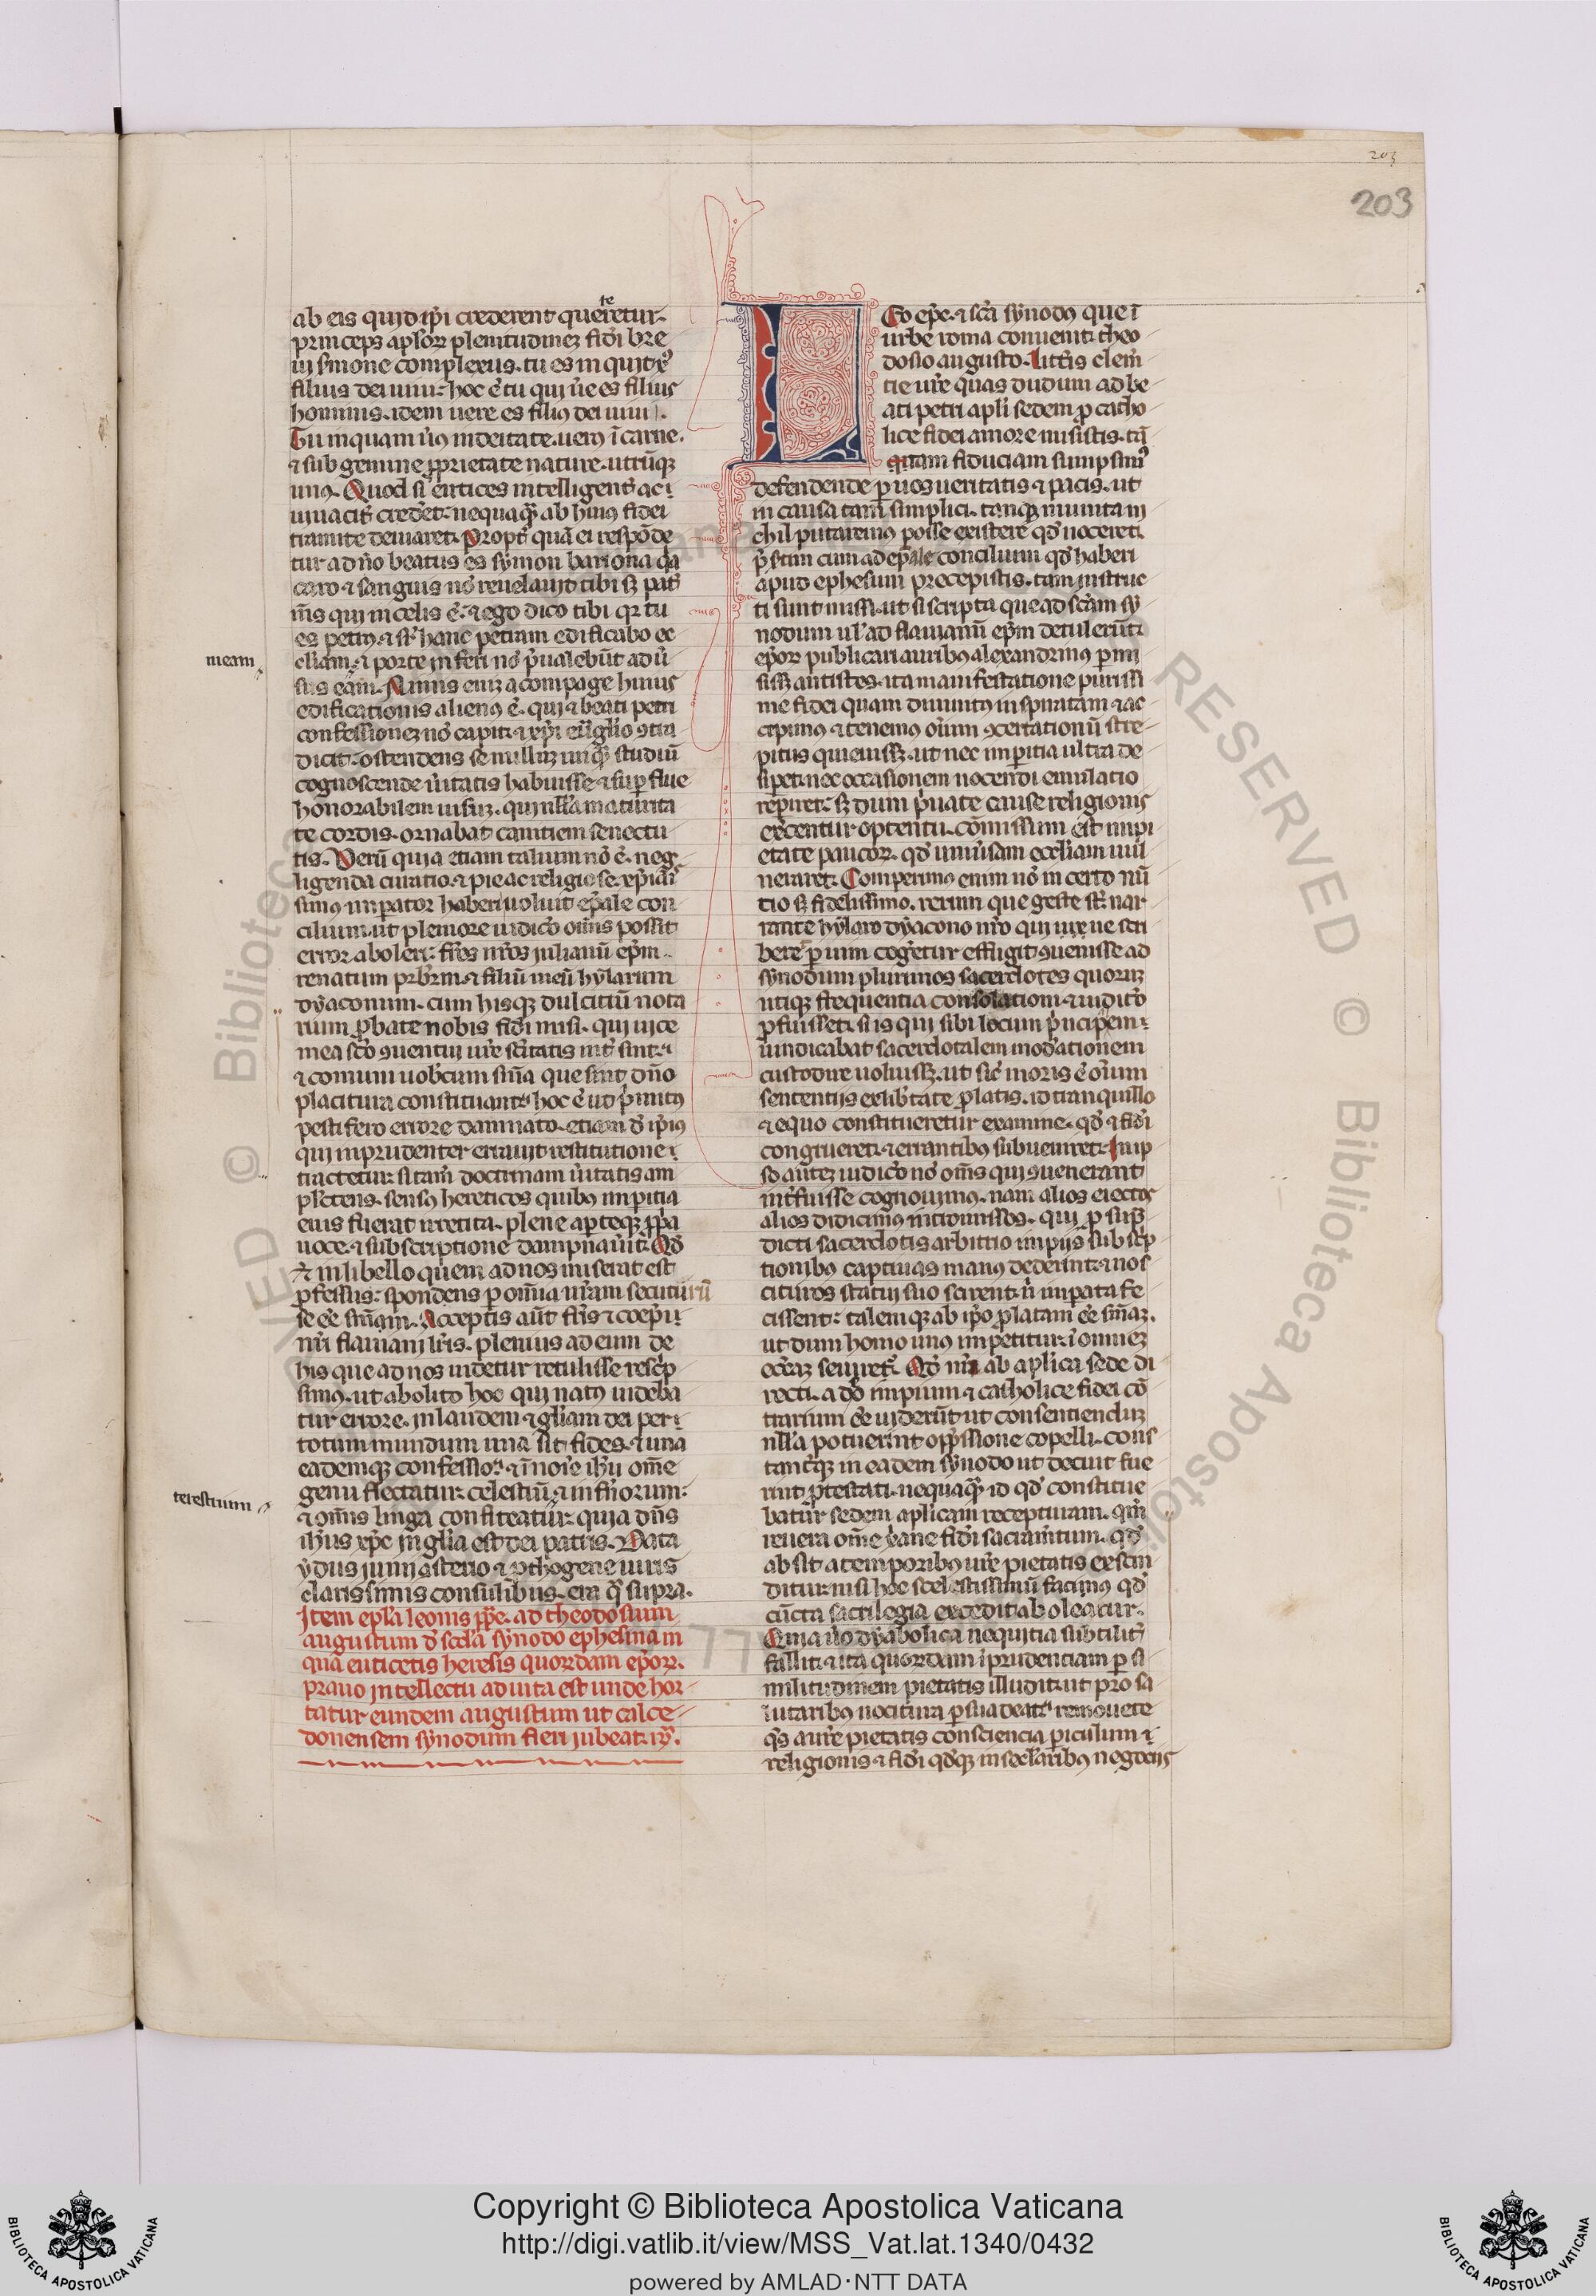 203
203
ab eis quid ip̄i crederent quereretur.
princeps ap̄lor̄ plenitudinez fidei bre
ui s̄mone complexus. tu es inquit xp̄s
filius dei uiui. hoc ē tu qui ue͛ es filius
hominis. idem uere es filiꝰ dei uiui.
Tu inquam uꝰ in deitate. ueꝰ ī carne.
⁊ sub gemine ꝓprietate nature. utrūqꝫ
unꝰ. Quod si eutices intelligent͛ ac
uiuacit͛ crederet. nequaqꝫ ab huiꝰ fidei
tramite deuiaret. Propt͛ quā ei respōde
tur a dn̄o beatus es symon bariona qa
caro ⁊ sanguis nō reuelauit tibi sꝫ pat͛
m̄s qui in celis ē. ⁊ ego dico tibi qr tu
es petrꝰ ⁊ sr͛ hanc petram edificabo ec
meam
cl̄iam. ⁊ porte inferi nō p͛ualebūt adū
sus eam. Nimis eniꝫ a compage huius
edificationis alienꝰ ē. qui ⁊ beati petri
confessionez nō capit. ⁊ xp̄i euglio ꝯtra
dicit. ostendens se nullūz unqꝫ studiū
cognoscende u͛itatis habuisse ⁊ suꝑflue
honorabilem uisuꝫ. qui nll̄a maturita
te cordis. ornabat canitiem senectu
tis. Verū quia etiam talium nō ē. neg
ligenda curatio. ⁊ pie ac religiose xp̄iāi
simꝰ imperator haberi uoluit ep̄ale con
cilium. ut pleniore iudico om̄is possit
error aboleri. fr̄es nr̄os iulianū ep̄m.
renatum prb̄rm. ⁊ filiū meū hylarum
dyaconum. cum hisqꝫ dulcitiū nota
rium ꝓbate nobis fidei misi. qui uice
mea sc̄o ꝯuentui ur̄e sc̄itatis int͛ sint.
⁊ comuni uobcum sn̄ia que sint dn̄o
placitura constituant. hoc ē ut p͛mitꝰ
pestifero errore damnato. etiam de ip̄ius
qui inprudenter errauit restitutione
tractetur. si tam̄ doctrinam u͛itatis am
plectens. sensꝰ hereticos quibꝰ imperitia
eius fuerat irretita. plene aperteqꝫ ꝓpa
uoce. ⁊ subscriptione dampnau͛it. Qd͛
⁊ in libello quem ad nos miserat est
ꝓfessus. spondens ꝑ omīa nr̄am secuturū
se ēe sn̄iam. Acceptis aūt fr̄is ⁊ coep̄i
nr̄i flauiani lr̄is. plenius ad eum de
his que ad nos uidetur retulisse resc͛p
simꝰ. ut abolito hoc qui natꝰ uideba
tur errore. in laudem ⁊ gl̄iam dei per
totum mundum una sit fides. ⁊ una
eademqꝫ confessio. ⁊ ī noīe ih̄u om̄e
terestrium
genu flectatur. celestiū. ⁊ infn̄orum.
⁊ om̄is linga confiteatur. quia dn̄s
ih̄us xp̄c in gl̄ia est dei patris. Data
ydus iunii asterio ⁊ ꝓthogene uiris
clarissimis consulibus. era q͛ supra.
Item epl̄a leonis pp̄e. ad theodosium
augustum d͛ sc̄da synodo ephesina in
qua euticetis heresis quordam epor̄.
prauo intellectu adiuta est unde hor
tatur eundem augustum ut calce
donensem synodum fieri iubeat.
Leo ep̄c. ⁊ sc̄a synodꝰ que ī
urbe roma conuenit. theo
dosio augusto. Litt͛is clem̄
tie ur̄e quas dudum ad be
ati petri apl̄i sedem ꝓ catho
lice fidei amore misistis. tā
quam fiduciam sumpsimꝰ
defendende ꝑ uos ueritatis ⁊ pacis. ut
in causa tam simplici. tanqꝫ munita ni
chil putaremus posse existere qd͛ noceret.
p͛stim cum ad ep̄ale concilium qd͛ haberi
apud ephesum precepistis. tam instruc
ti sunt missi. ut si scripta que ad sc̄am sy
nodum ul͛ ad flauianū ep̄m detulerūt
epor̄ publicari auribꝰ alexandrinꝰ ꝑmi
sissꝫ antistes. ita manifestatione purissi
me fidei quam diuinitꝰ inspiratam ⁊ ac
cepimꝰ ⁊ tenemꝰ oīum ꝯcertationū stre
pitus quieuissꝫ. ut nec imperitia ultra de
siperet. nec occasionem nocendi emulatio
reperiret. sꝫ dum p͛uate cause religionis
exercentur optentu. cōmissum est impi
etate paucor̄. qd͛ uniu͛sam eccl̄iam uul
neraret. Comperimꝰ enim nō incerto nū
tio sꝫ fidelissimo. rerum que geste st͛ nar
rante hylaro dyacono nr̄o qui uix ne scri
bere ꝑ uim cogeretur effugit ꝯuenisse ad
synodum plurimos sacerdotes quoruꝫ
utiqꝫ frequentia consolationi ⁊ iudicio
ꝓfuisset. si is qui sibi locum p͛ncipem
uindicabat sacerdotalem moderationem
custodire uoluissꝫ. ut sic͛ moris ē oīum
sententiis ex lib͛tate ꝓlatis. id tranquillo
⁊ equo constitueretur examine. qd͛ ⁊ fidei
congrueret. ⁊ errantibꝰ subueniret. In ip
so autez iudicio nō om̄s qui ꝯuenerant
int͛fuisse cognouimꝰ. nam alios eiectos
alios didicimꝰ intromissos. qui ꝓ sup͛
dicti sacerdotis arbitrio impiis subsc͛p
tionibꝰ captiuas manꝰ dederint. nos
cituros statui suo scirent. n͛ imperata fe
cissent. talemqꝫ ab ip̄o ꝓlatam ēe sn̄iaꝫ.
ut dum homo unꝰ impetitur. ī omnez
eccl̄iaꝫ seuiret. Qd͛ nr̄i ab apl̄ica sede di
recti. adō impium ⁊ catholice fidei cō
trarium ēe uiderūt ut consentienduꝫ
nll̄a potuerint opp͛ssione copelli. cons
tant͛qꝫ in eadem synodo ut decuit fue
rint ꝓtestati. nequaqꝫ id qd͛ constitue
batur sedem apl̄icam recepturam. qm̄
reuera om̄e xp̄iane fidei sacramtum. qd͛
absit a temporibꝰ ur̄e pietatis exscin
ditur. nisi hoc scelestissimū facinꝰ qd͛
cūcta sacrilegia excedit aboleatur.
Quia uō dyabolica nequitia subtilit͛
fallit. ⁊ ita quordam īprudenciam ꝑ si
militudinem pietatis illudit. ut pro sa
lutaribꝰ nocitura ꝑsuadeat. remouete
qs̄ a ur̄e pietatis consciencia ꝑiculum
religionis ⁊ fidei qd͛qꝫ in secl̄aribꝰ negociis
RESERVED © Biblioteca Apostolica
Copyright © Biblioteca Apostolica Vaticana
http://digi.vatlib.it/view/MSS_Vat.lat.1340/0432
powered by AMLAD·NTT DATA
BIBLIOTECA APOSTOLICA VATICANA
BIBLIOTECA APOSTOLICA VATICANA